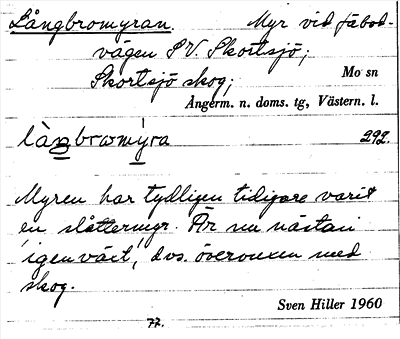 Långbromyran. Myr vid fäbod-
vägen S.V. Skortsjö;
Skortsjö skog; Mo sn
Ångerm. n. doms. tg, Västern. l.
làŋbromỳra 292.
Myren har tydligen tidigare varit
en slåttermyr. Är nu nästan
igenväxt, dvs. övervuxen med
skog.
Sven Hiller 1960
77.